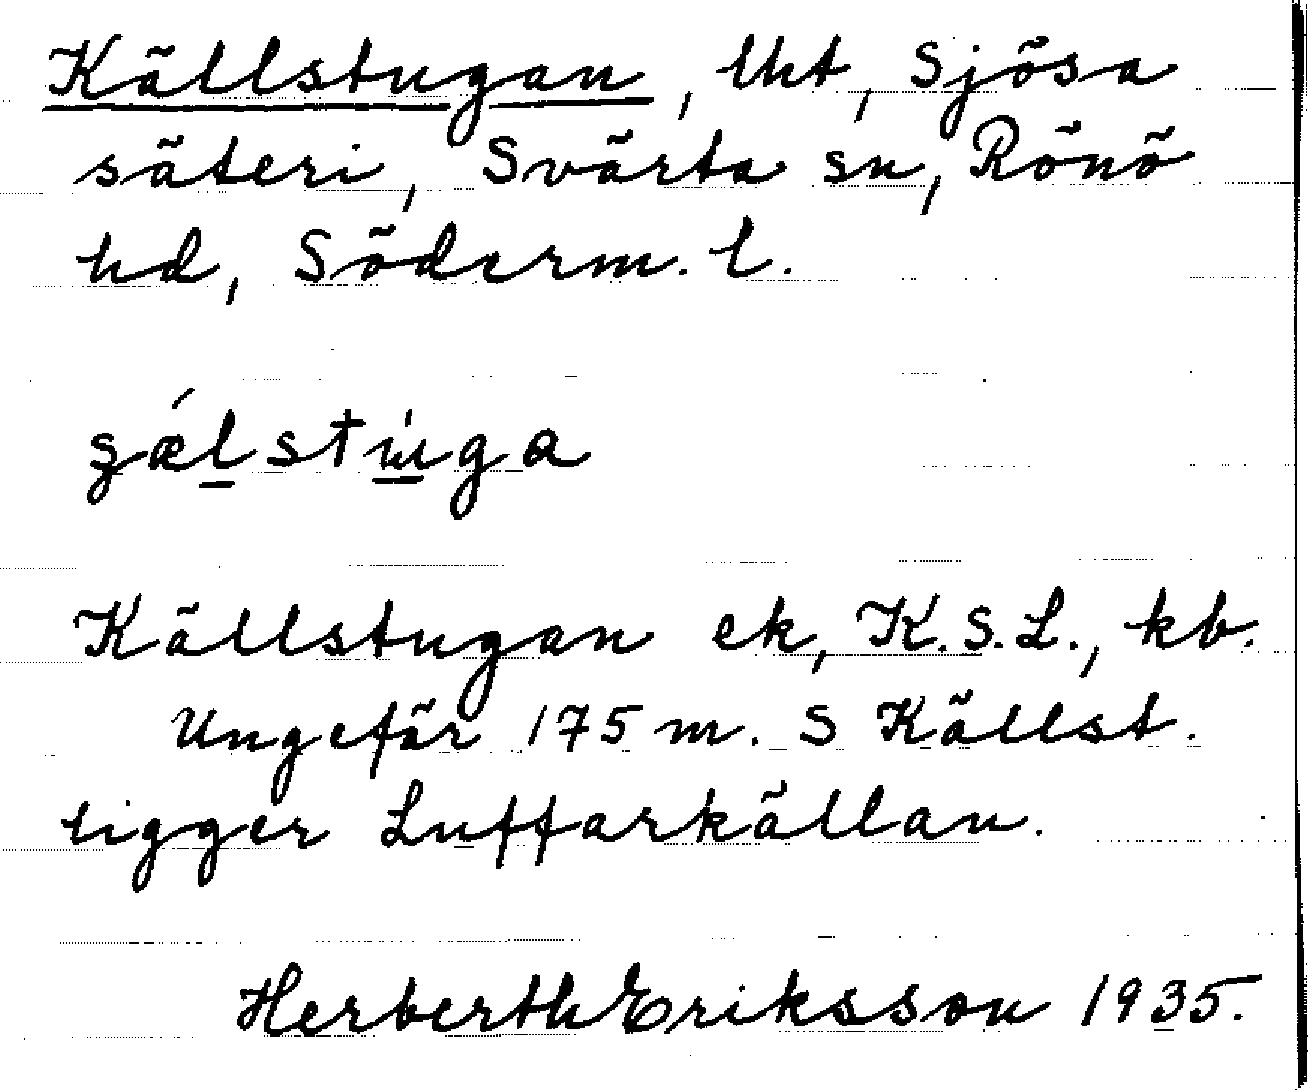 Källstugan, lht, Sjösa
säteri, Svärta sn, Rönö
hd, Söderm. l.
Källstugan ek, K.S.L., kb.
Ungefär 175 m. S Källst.
ligger Luffarkällan.
Herberth Eriksson 1935.